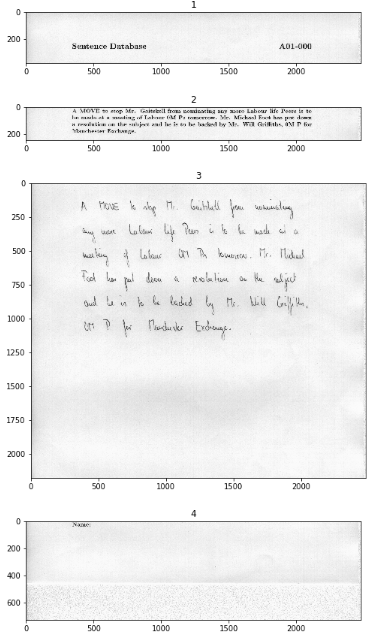 1
0
200
Sentence Database A01-000
0 500 1000 1500 2000
2
0
200
A MOVE to stop Mr. Gaitskell from nominating any more Labour life Peers is to
be made at a meeting of Labour 0M Ps tomorrow. Mr. Michael Foot has put down
a resolution on the subject and he is to be backed by Mr. Will Griffiths, 0M P for
Manchester Exchange.
0 500 1000 1500 2000
3
0
250
500
750
1000
1250
1500
1750
2000
A MOVE to stop Mr. Gaitskell from nominating
any more Labour life Peers is to be made at a
meeting of Labour 0M Ps tomorrow. Mr. Michael
Foot has put down a resolution on the subject
and he is to be backed by Mr. Will Griffiths,
0M P for Manchester Exchange.
0 500 1000 1500 2000
4
0
200
400
600
Name:
0 500 1000 1500 2000